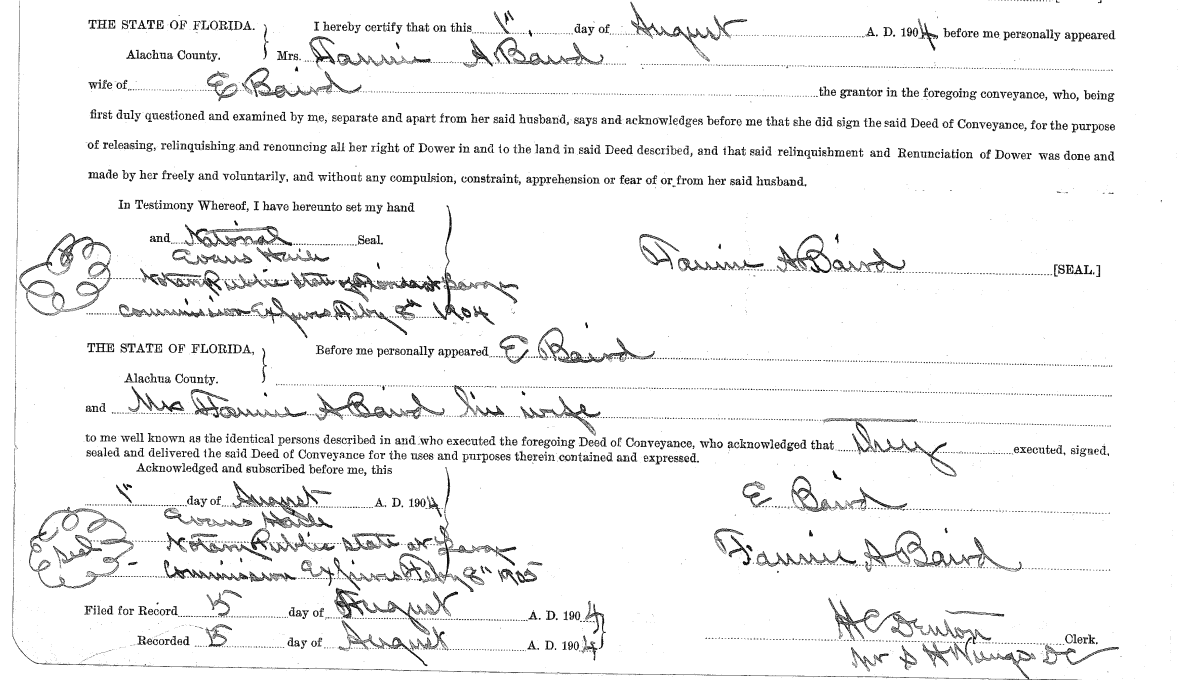 THE STATE OF FLORIDA. I hereby certify that on this 1st day of August A. D. 1904, before me personally appeared
Alachua County. Mrs. Fannie A Baird
wife of E Baird the grantor in the foregoing conveyance, who, being
first duly questioned and examined by me, separate and apart from her said husband, says and acknowledges before me that she did sign the said Deed of Conveyance, for the purpose
of releasing, relinquishing and renouncing all her right of Dower in and to the land in said Deed described, and that said relinquishment and Renunciation of Dower was done and
made by her freely and voluntarily, and without any compulsion, constraint, apprehension or fear of or from her said husband.
In Testimony Whereof, I have hereunto set my hand
and Notorial Seal.
Evans Haile
Fannie A Baird [SEAL.]
Notary Public State of Florida at Large
Commission Expires Feby 8th 1904
THE STATE OF FLORIDA, Before me personally appeared E Baird
Alachua County.
and Mrs Fannie A Baird his wife
to me well known as the identical persons described in and who executed the foregoing Deed of Conveyance, who acknowledged that they executed, signed,
sealed and delivered the said Deed of Conveyance for the uses and purposes therein contained and expressed.
Acknowledged and subscribed before me, this
1st day of August A. D. 1904
E Baird
Evans Haile
Seal
Notary Public state at Large
Fannie A Baird
Commission Expires Feby 8th 1905
Filed for Record 15 day of August A. D. 1904
Recorded 15 day of August A. D. 1904
H C Denton Clerk.
DC